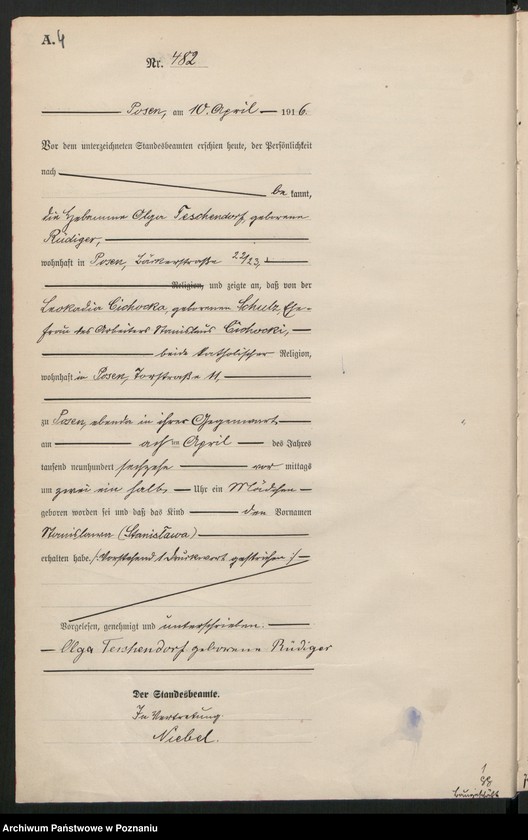 A. 4
Nr. 482
Posen, am 10. April 1916
Vor dem unterzeichneten Standesbeamten erschien heute, der Persönlichkeit
nach
be kannt,
die Hebamme Olga Teschendorf, geborene
Rüdiger,
wohnhaft in Posen, Bäckerstraße 22/23,
Religion, und zeigte an, daß von der
Leokadia Cichocka, geborenen Schulz, Ehe-
frau des Arbeiters Stanislaus Cichocki,
beide katholischer Religion,
wohnhaft in Posen, Torstraße 11,
zu Posen, ebenda in ihrer Gegenwart
am achten April des Jahres
tausend neunhundert sechzehn vor mittags
um zwei ein halb Uhr ein Mädchen
geboren worden sei und daß das Kind den Vornamen
Stanislawa (Stanisława)
erhalten habe. /: Vorstehend 1 Druckwort gestrichen :/
Vorgelesen, genehmigt und unterschrieben.
Olga Teschendorf geborene Rüdiger
Der Standesbeamte.
In Vertretung.
Niebel.
Archiwum Państwowe w Poznaniu